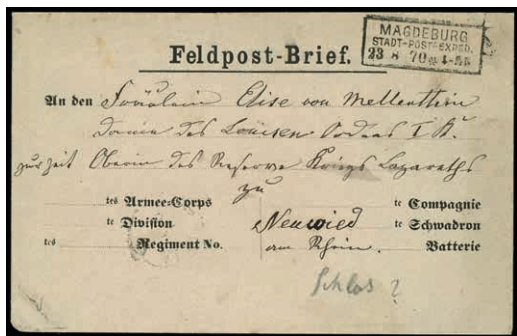 MAGDEBURG
STADT-POST-EXPED.
23 8 70
Feldpost-Brief.
An den Fräulein Elise von Mellenthin
Dame des Louisen Ordens I Kl.
zur Zeit Oberin des Reserve Kriegs Lazareths
zu
tes Armee-Corps te Compagnie
te Division Neuwied te Schwadron
tes Regiment No. am Rhein. Batterie
Schlos ?